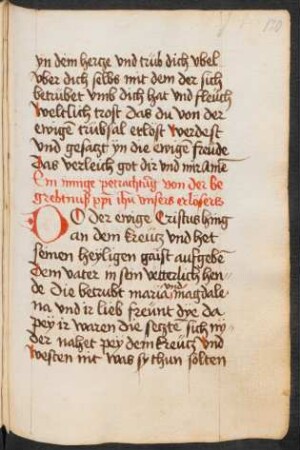 120
yn dem hertze vnd trüb dich vbel
vber dich selbs mit dem der sich
betrübet vmb dich hat vnd fleüch
weltlich trost das du von der
ewigē trübsal erlöst werdest
vnd gesatzt yn die ewigē freüde
das verleich got dir vnd mir Amē
Ein innige petrachtūg von der be
grebtnuß
ihū vnsers erlösers
DO der ewige Cristus hing
an dem kreütz vnd het
seinen heyligen gaist aufgebē
dem vater in sein vetterlich hen
de Die betrübt maria vnd magdale
na vnd ir lieb freünt dye da
pey ir waren die setztē sich ny
der nahet pey dem kreütz vnd
westen nit was sy thun solten